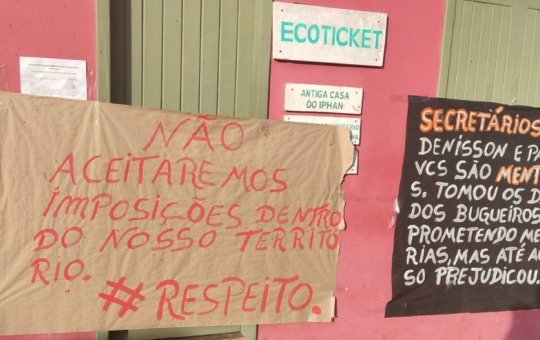 ECOTICKET
ANTIGA CASA
DO IPHAN
NÃO
ACEITAREMOS
IMPOSIÇÕES DENTRO
DO NOSSO TERRITÓ
RIO.
#RESPEITO.
SECRETÁRIOS
DENISSON E PA
VCS SÃO MENT
S. TOMOU OS D
DOS BUGUEIROS
PROMETENDO ME
RIAS, MAS ATÉ A
SO PREJUDICOU.